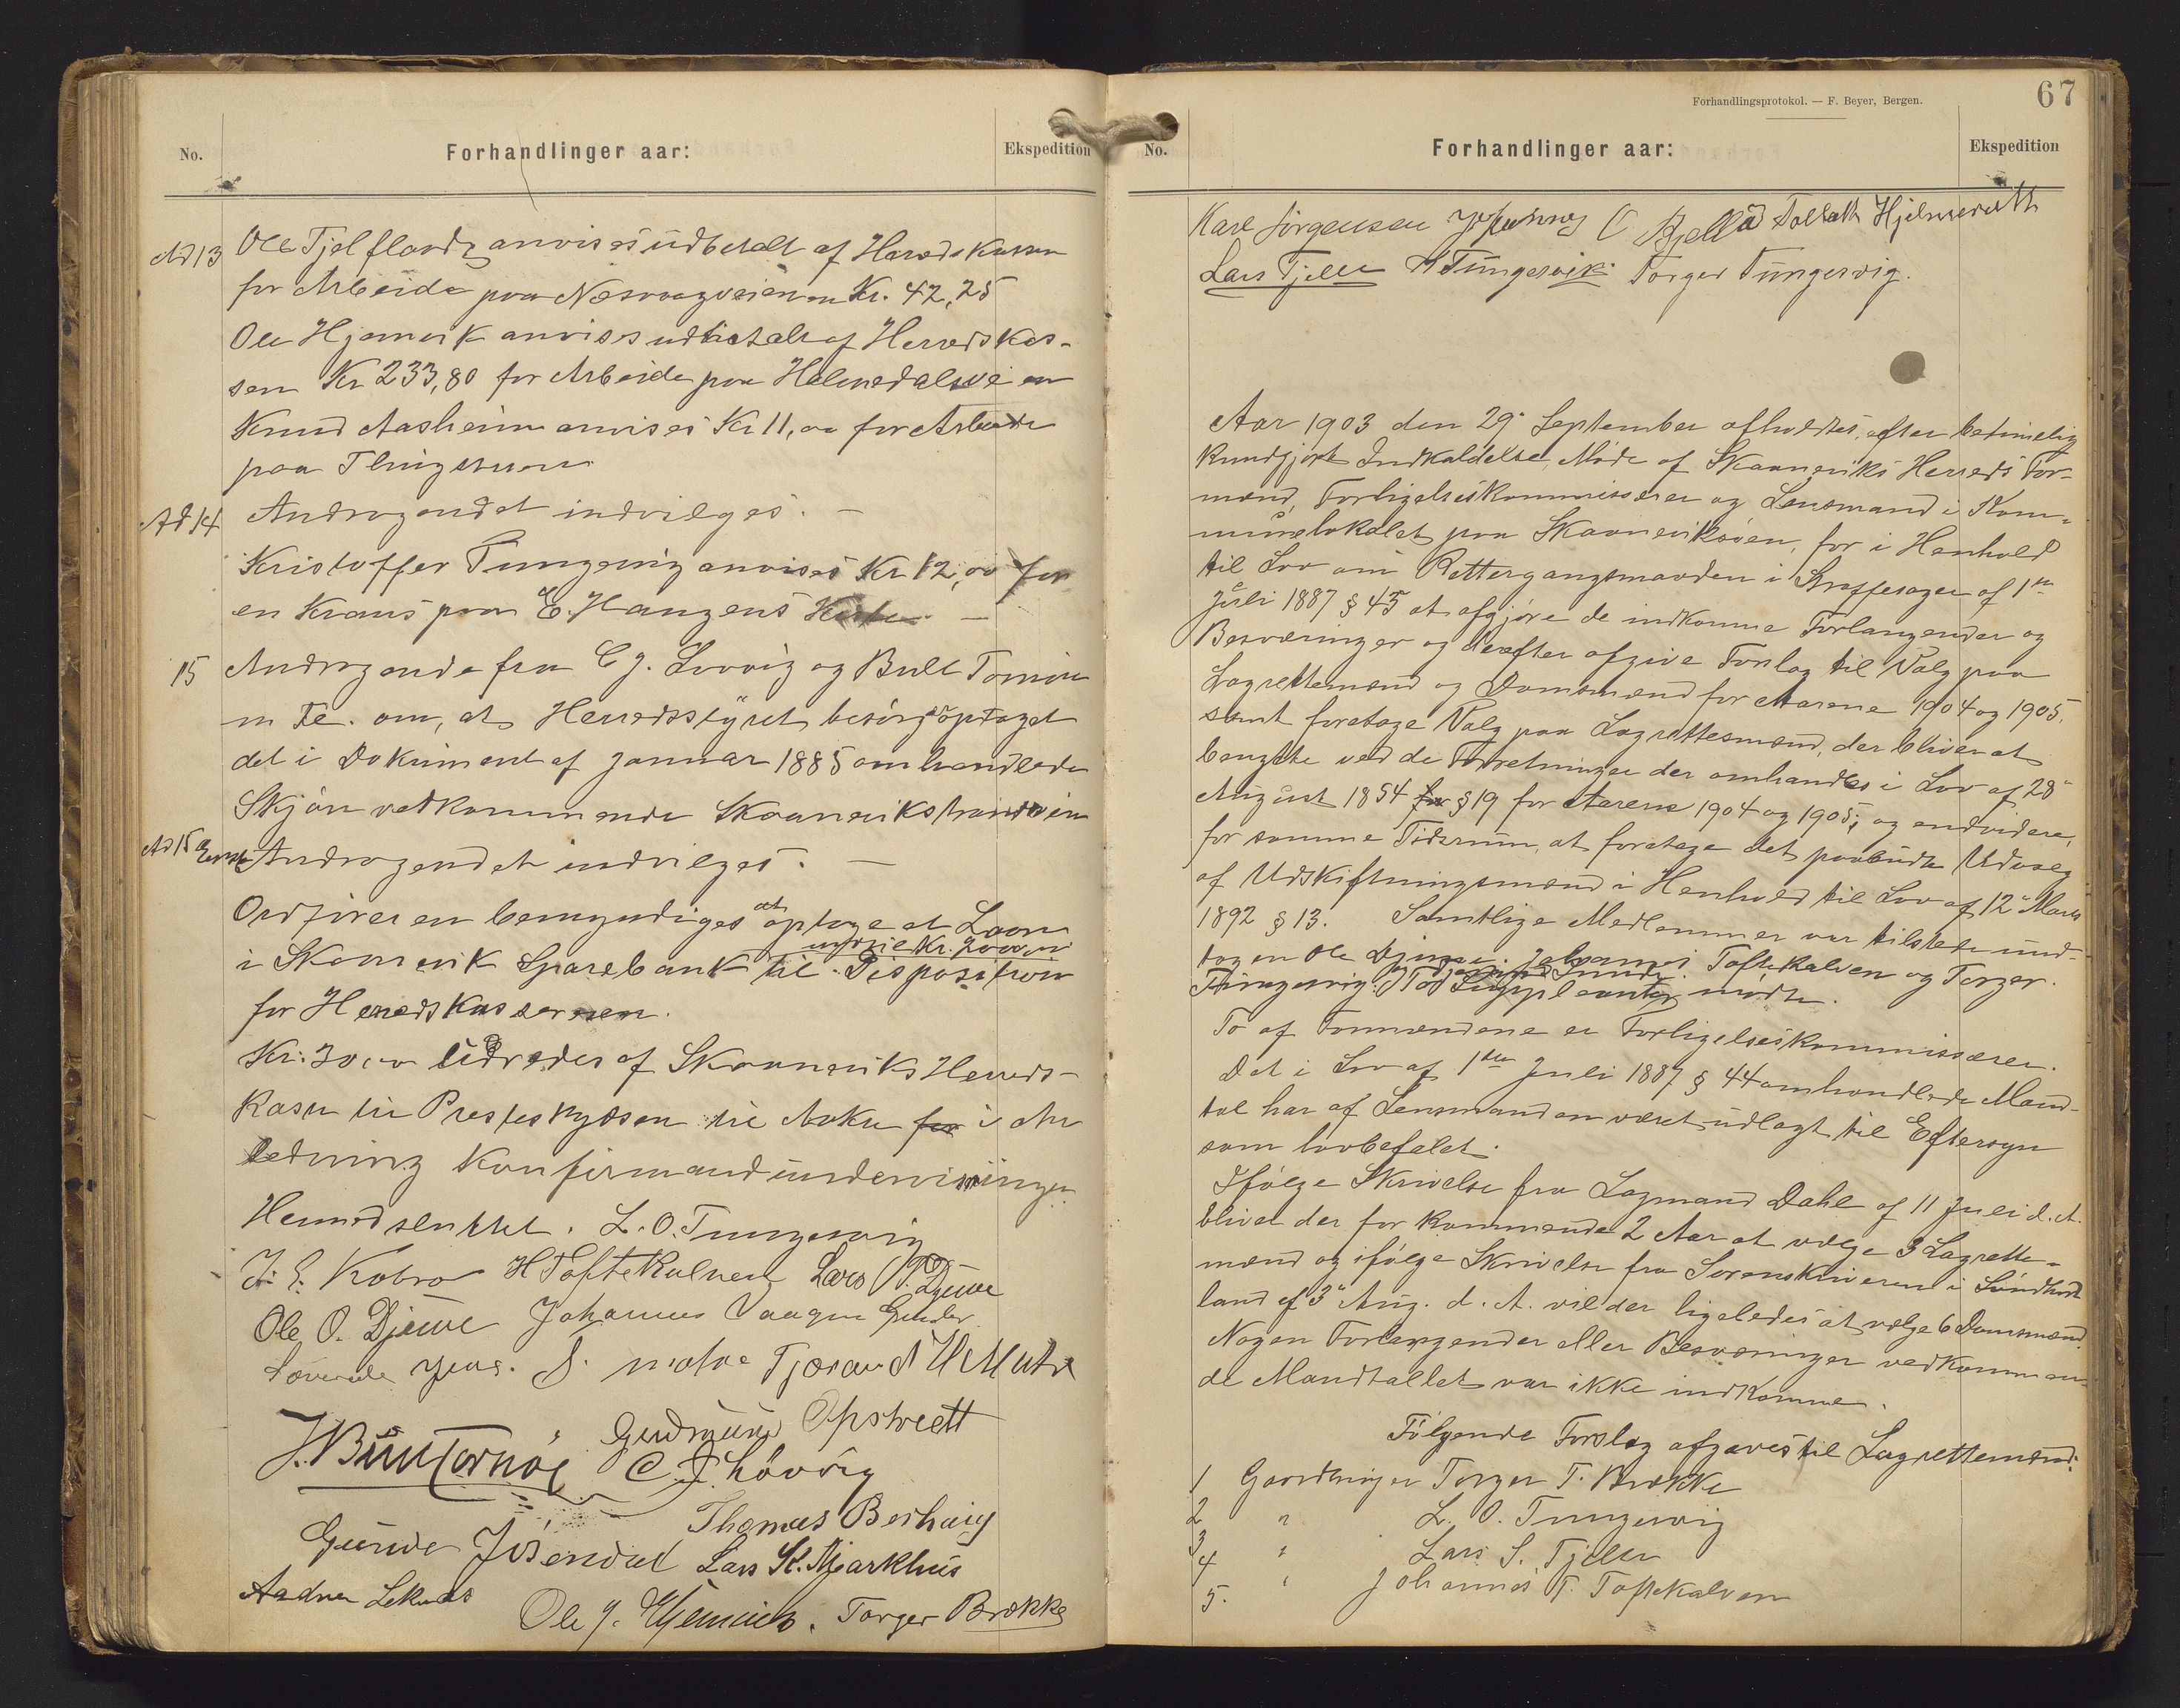 No.
Forhandlinger aar:
Ekspedition
Ad 13 Ole Tjelflaadt anvises udbetalt af Heredskassen
for Arbeide paa Næsvaagveien Kr. 42,25
Ole Hjemvik anvises udbetalt af Herredskas-
sen Kr 233,80 for Arbeide paa Holmedalsveien
Knud Aasheim anvises Kr 11,00 for Arbeide
paa
Ad 14 Andragendet indvilges. —
Kristoffer Tungesvig anvises Kr 12,00 for
en Krans paa E. Haugens Kiste —
15 Andragende fra C J. Lovvig og Bull Tornöe
m Fl. om, at Herredsstyret besörg optaget
det i Dokument af Januar 1885 omhandlede
Skjön vedkommende Skaanevikstrandveien
Ad 15 Andragendet indvilges. —
Ordföreren bemyndiges at optage et Laan
i Skonevik Sparebank indtil Kr. 2000,00 til Disposition
for Herredskassereren.
Kr. 30,00 udredes af Skaaneviks Herreds-
kasse til Presteskydsen til Aakre for i An
ledning Konfirmandundervisningen.
Hermed sluttet. L. O. Tungesvig
J. E. Kobro H Toftekalven Lars P. Djuve
Ole O. Djuve Johannes Vaage
Jens. S. Matre Tjeran d H Matre
J. Bull Tornöe Gudmund Opstveit
C J Lövvig
Thomas Berhaug
Gunder Isendal Lars K. Mjarkhus
Aadne Leknes Ole J. Hjemvich. Torger Brække
Forhandlingsprotokol. — F. Beyer, Bergen.
67
No.
Forhandlinger aar:
Ekspedition
Karl Jörgensen Johannes O Fjellö Tollak Hjelmeveth
Lars Tjelle H Tungesvik Torger Tungesvig.
Aar 1903 den 29de September afholdtes, efter betimelig
kundgjort Indkaldelse, Möde af Skaaneviks Herreds For-
mænd, Forligelseskommissærer og Lensmand i Kom-
munelokalet paa Skaaneviksöen, for i Henhold
til Lov om Rettergangsmaaden i Straffesager af 1ste
Juli 1887 § 45 at afgjöre de indkomne Forlangender og
Besværinger og derefter afgive Forslag til Valg paa
Lagrettemænd og Domsmænd for Aarene 1904 og 1905,
samt foretage Valg paa Lagrettesmænd, der bliver at
benytte ved de Forretninger der omhandles i Lov af 28de
August 1854 for § 19 for Aarene 1904 og 1905; og endvidere,
for samme Tidsrum, at foretage det paabudte Udvalg
af Udskiftningsmænd i Henhold til Lov af 12te Marts
1892 § 13. Samtlige Medlemmer var tilstede und-
tagen Ole Djuve. Johannes Toftekalven og Torger
Tungesvig. Suppleanter mödte.
To af Formændene er Forligelseskommissærer.
Det i Lov af 1ste Juli 1887 § 44 omhandlede Mand-
tal har af Lensmanden været udlagt til Eftersyn
som lovbefalet.
Ifölge Skrivelse fra Lagmand Dahl af 11 Juli d. A.
bliver der for kommende 2 Aar at vælge 3 Lagrette-
mænd og ifölge Skrivelse fra Sorenskriveren i Söndhord
land af 3de Aug. d. A. vil der ligeledes at vælge 6 Domsmænd.
Nogen Forlangender eller Besværinger vedkommen-
de Mandtallet var ikke indkomne.
Fölgende Forslag afgaves til Lagrettemænd:
1 Gaardbruger Torger T. Brække
2 " L. O. Tungesvig
3 " Lars S. Tjelle
4 " Johannes T. Toftekalven
5.